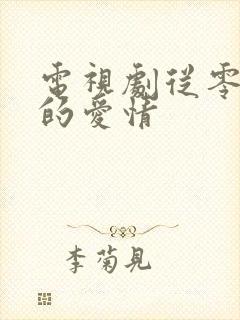 電視劇從零
的愛情
李菊見